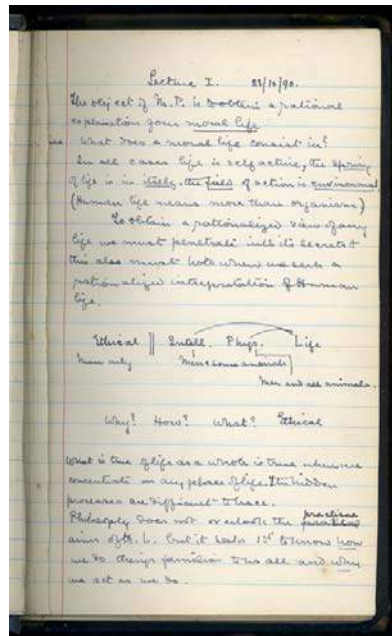 Lecture I. 28/10/90.
The object of M.P. is to obtain a rational
explanation of our moral life.
What does a moral life consist in?
In all cases life is self active, the spring
of life is in itself, the field of action is environment
(Human life means more than organism)
To obtain a rationalized view of any
life we must penetrate into its secrets &
this also must hold when we seek a
rationalized interpretation of Human
life.
Ethical || Intell. Phys. Life
Man only Men & some animals
Men and all animals.
Why? How? What? Ethical
What is true of life as a whole is true when we
concentrate on any phase of life. The hidden
processes are difficult to trace.
Philosophy does not overlook the practical
aims of M. L. but it seeks 1st to know how
we do things familiar to us all and why
we act as we do.